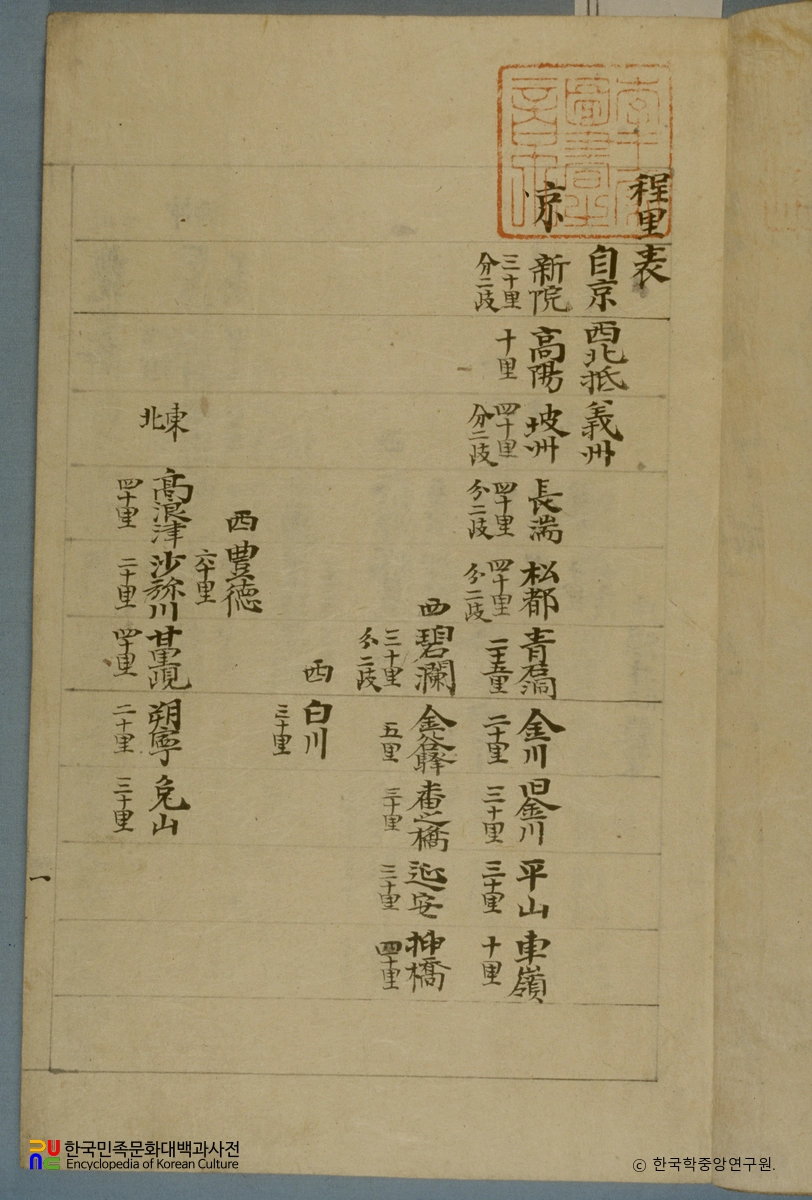 程里表
自京西北抵義州
京 新院 三十里 分二歧
高陽 十里
坡州 四十里 分二歧
長湍 四十里 分二歧
松都 四十里 分二歧
青石洞 二十五里
金川 二十里
旧金川 三十里
平山 三十里
車嶺 十里
西 碧瀾 三十里 分二歧
金谷驛 五里
番之橋 三十里
延安 三十里
柛橋 四十里
西 白川 三十里
西 豊德 六十里
東北 高浪津 四十里
沙弥川 二十里
朔寧 二十里
兎山 三十里
一
한국민족문화대백과사전
Encyclopedia of Korean Culture
ⓒ 한국학중앙연구원.